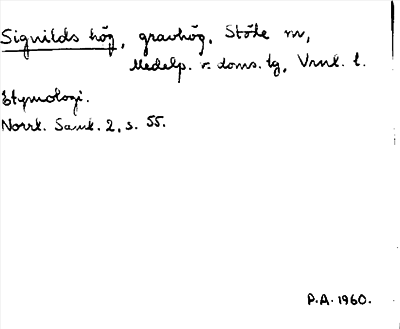 Signilds hög, gravhög, Stöde sn,
Medelp. v. doms. tg, Vrnl. l.
Etymologi.
Norrl. Saml. 2, s. 55.
P.A. 1960.